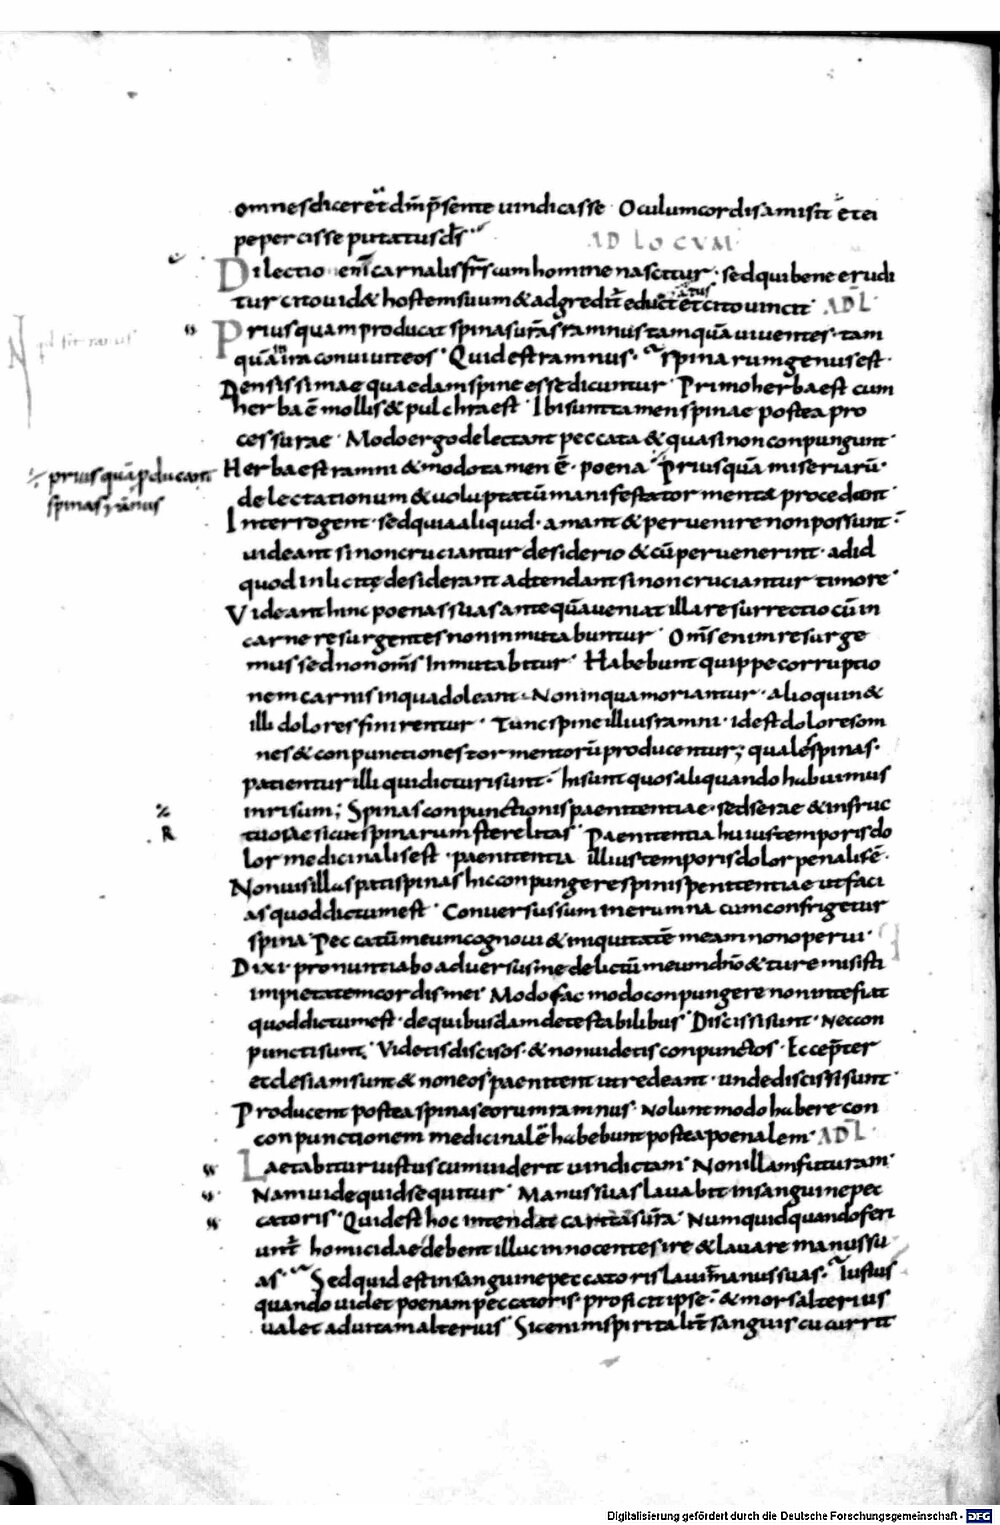 omnes diceret dm̄ p̄sente uindicasse · Oculum cordis amisit et ei
pepercisse putatus ds̄
AD LOCVM
Dilectio enī carnalis frs̄ cum homine nascitur · sed qui bene erudi
tur cito uid& hostem suum & adgredit̄ et cito uincit · AD L̄
Priusquam producat spinas ur̄as ramnus tamquā uiuentes · tam
quā in ira conuiuit eos · Quid est ramnus · spinarum genus est ·
Densissimae quaedam spine esse dicuntur · Primo herba est cum
herba ē mollis & pulchra est · Ibi sunt tamen spinae postea pro
cessurae · Modo ergo delectant peccata & quasi non conpungunt ·
Herba est ramni & modo tamen ē · poena · priusquā miseriarū ·
prius quā p̄ducant
spinas ramnus
delectationum & uoluptatū manifesta tormenta procedant ·
Interrogent · se dquia aliquid · amant & peruenire non possunt ·
uideant si non cruciantur desiderio & cū peruenerint · ad id
quod inlicite desiderant adtendant si non cruciantur timore ·
Videant hinc poenas suas antequā ueniat illa resurrectio cū in
carne resurgentes non inmutabuntur · Om̄s enim resurge
mus sed non om̄s inmutabitur · Habebunt quippe corruptio
nem carnis in qua doleant · Non in qua moriantur · alioquin &
illi dolores finirentur · Tunc spine illius ramni · id est dolores om
nes & conpunctiones tormentorū producentur; quales spinas ·
patientur illi qui dicturi sunt · hi sunt quos aliquando habuimus
in risum; Spinas conpunctionis paenitentiae · sed serae & infruc
R
tuosae sicut spinarum sterelitas · Paenitentia huius temporis do
lor medicinalis est · paenitentia illius temporis dolor penalis ē ·
Non uis illas pati spinas hic conpungere spinis penitentiae ut faci
as quod dictum est · Conuersus sum in erumna cum confrigetur
spina · Peccatū meum cognoui & iniquitatē meam non operui ·
Dixi · pronuntiabo aduersus me delictū meum dn̄o & tu remisisti
impietatem cordis mei · Modo fac modo conpungere non inte fiat
quod dictum est · de quibusdam detestabilibus · Discissi sunt · nec con
puncti sunt; Videtis discisos · & non uidetis conpunctos · Ecce p̄ter
etclesiam sunt & non eos paenitent ut redeant · unde discissi sunt ·
Producent postea spinas eorum ramnus · Nolunt modo habere con
conpunctionem medicinalē habebunt postea poenalem · AD L̄
Laetabitur iustus cum uiderit uindictam · Non illam futuram ·
Nam uide quid sequitur · Manus suas lauabit in sanguine pec
catoris · Quid est hoc intendat caritas ur̄a · Numquid quando feri
unt̄ homicidae debent illuc innocentes ire & lauare manus su
as · Sed quid est in sanguine peccatoris laui manus suas · Iustus
quando uidet poenam peccatoris · proficit ipse · & mors alterius
ualet ad uitam alterius · Si cenim spiritalit̄ sanguis cucurrit